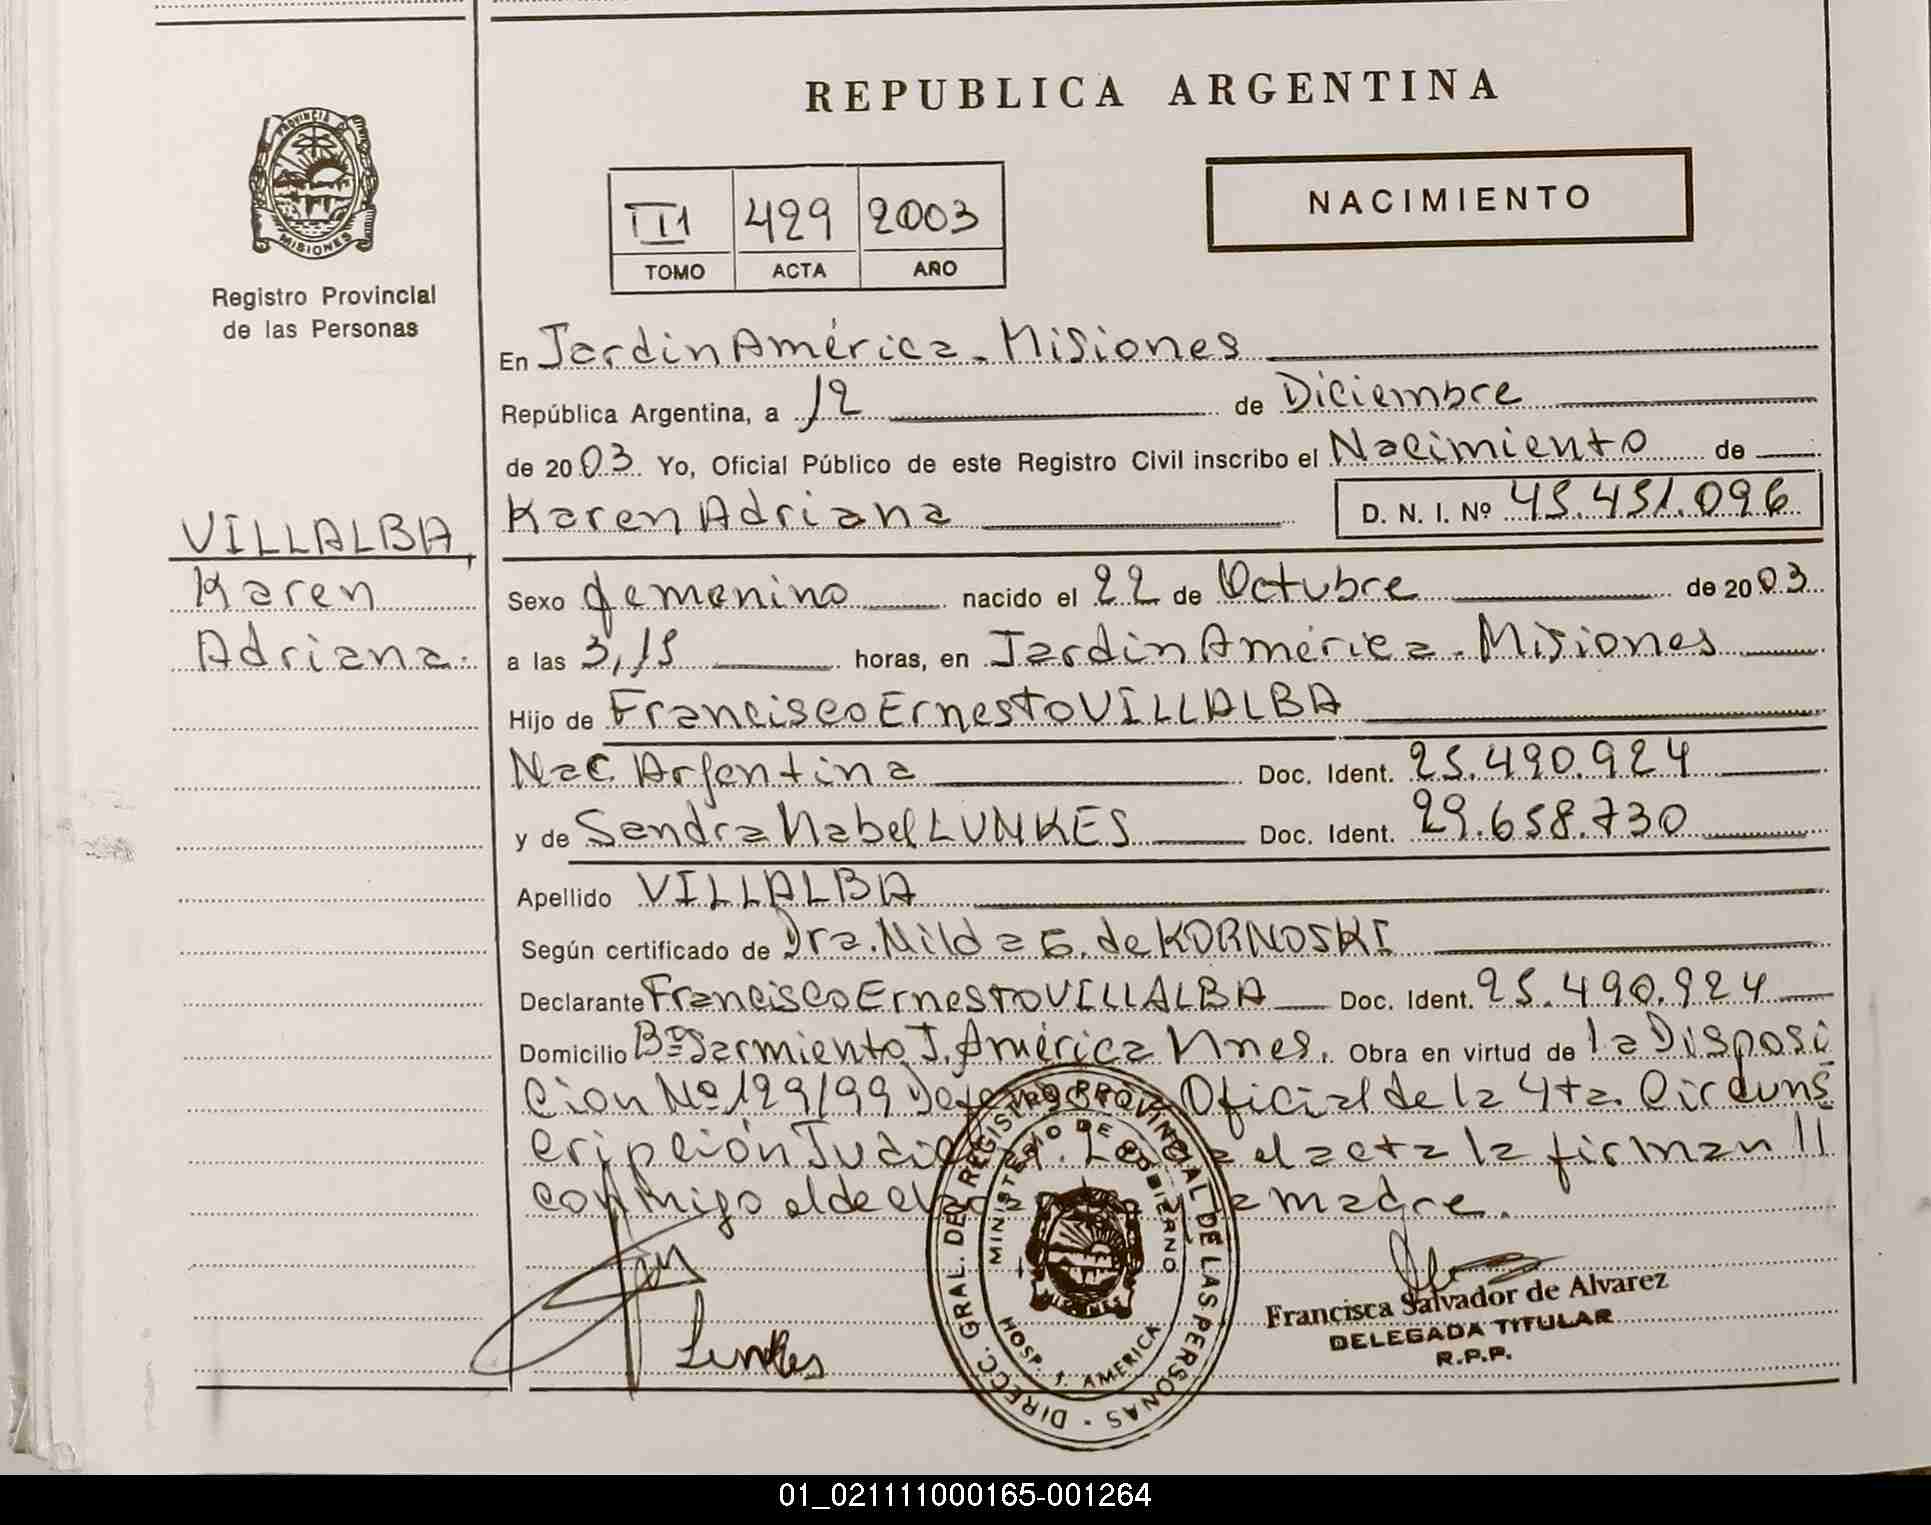 REPUBLICA ARGENTINA
PROVINCIA DE
MISIONES
Registro Provincial
de las Personas
III 429 2003
TOMO ACTA AÑO
NACIMIENTO
En Jardin América - Misiones
República Argentina, a 12 de Diciembre
de 2003. Yo, Oficial Público de este Registro Civil inscribo el Nacimiento de
Karen Adriana D. N. I. Nº 45.451.096
VILLALBA,
Karen
Adriana.
Sexo femenino nacido el 22 de Octubre de 2003
a las 3,15 horas, en Jardin América - Misiones
Hijo de Francisco Ernesto VILLALBA
Nac. Argentina Doc. Ident. 25.490.924
y de Sandra Mabel LUNKES Doc. Ident. 29.658.730
Apellido VILLALBA
Según certificado de Dra. Nilda G. de KORNOSKI
Declarante Francisco Ernesto VILLALBA Doc. Ident. 25.490.924
Domicilio Bº Sarmiento J. América Mnes. Obra en virtud de la Disposi
cion Nº 129/99 Oficial de la 4ta. Circuns
cripción el acta la firman
conmigo el madre.
Lunkes
DIREC. GRAL. DEL REGISTRO PROVINCIAL DE LAS PERSONAS
MINISTERIO DE GOBIERNO
MISIONES
HOSP. J. AMERICA
Francisca Salvador de Alvarez
DELEGADA TITULAR
R.P.P.
01_021111000165-001264